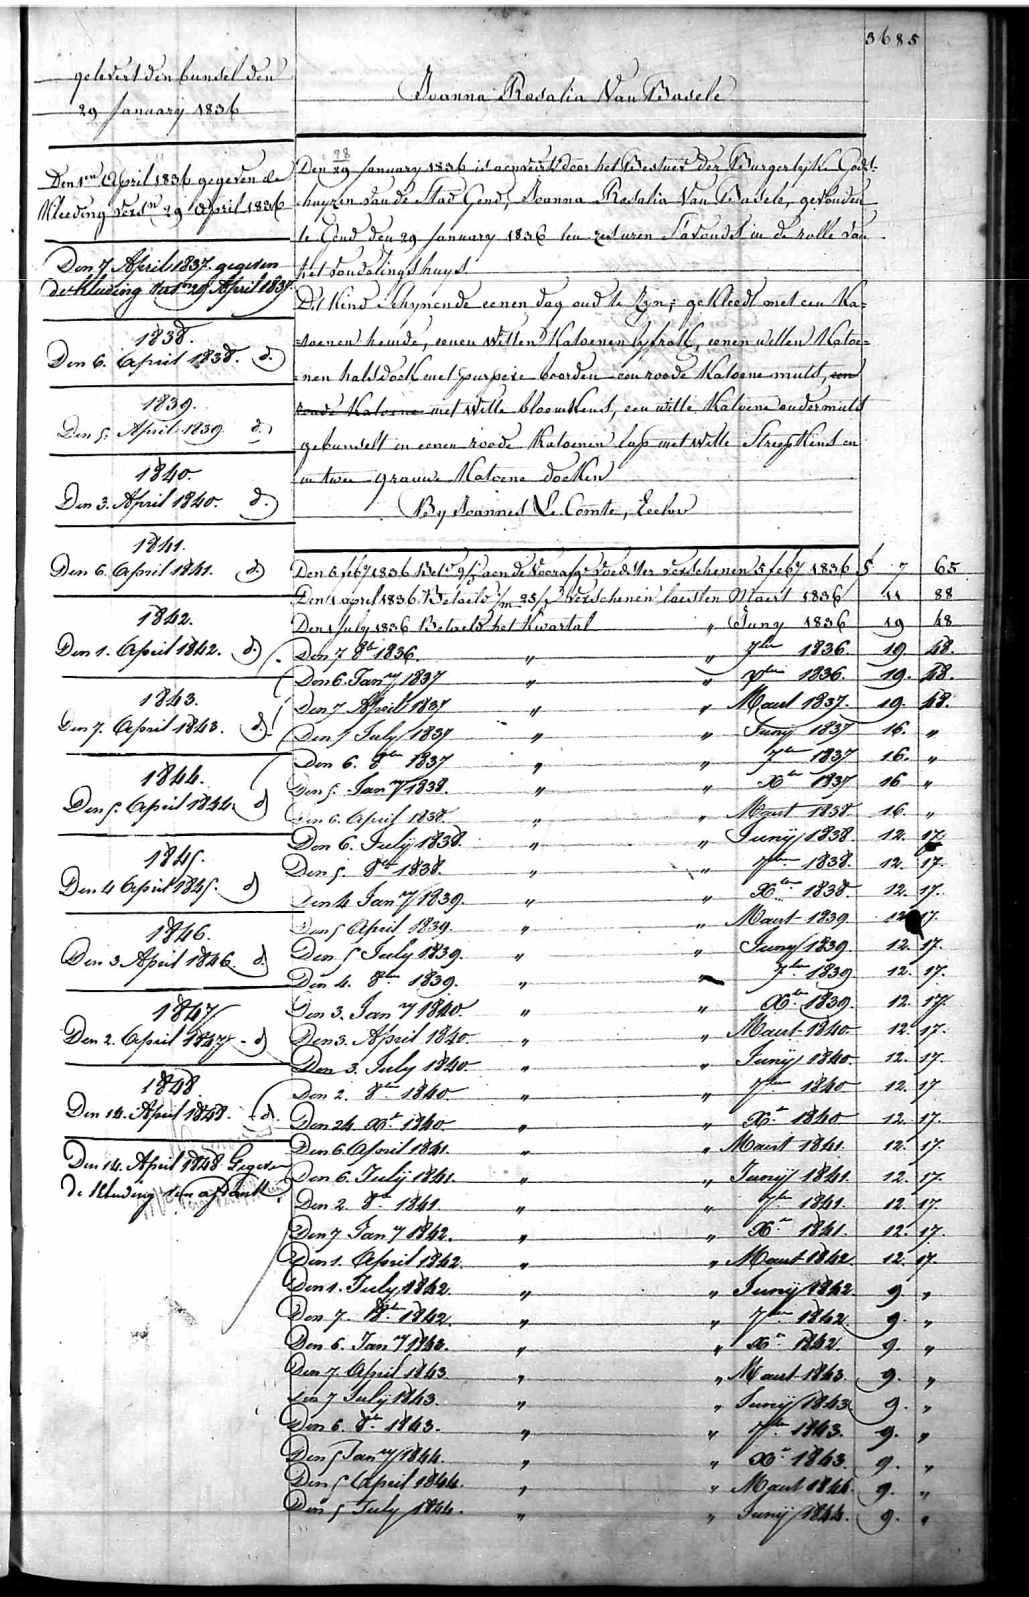 3685
gelevert den bunsel den
29 January 1836
Joanna Rosalia Van Basele
Den 1en April 1836 gegeven de
Kleeding 29 April 1836
Den 7 April 1837 gegeven
de kleeding April 1837
1838.
Den 6. April 1838. d.
1839.
Den 5. April 1839 d.
1840.
Den 3. April 1840. d.
1841.
Den 6. April 1841. d
1842.
Den 1. April 1842. d.
1843.
Den 7. April 1843. d.
1844.
Den 5. April 1844 d
1845.
Den 4 April 1845. d
1846.
Den 3 April 1846. d.
1847
Den 2. April 1847 - d
1848
Den 14. April 1848. d.
Den 14. April 1848 Gegeven
de Kleeding van
28
Den 29 January 1836 is door het Bestuer der Burgerlyke Gods-
huyzen van de Stad Gend, Joanna Rosalia Van Basele, gevonden
te Gend den 29 January 1836 ten zes uren S'avonds in de rolle van
het vondelingshuys.
Dit Kind schynende eenen dag oud te zyn, gekleedt met een Ka=
=toenen hemde, eenen Witten Katoenen lyfrok, eenen witten Katoe=
=nen halsdoek met purpere boorden een roode Katoene muts, een
roude Katoene met Witte bloemkens, een witte Katoene ondermuts
gebunselt in eenen roode Katoenen lap met Witte Streepkens en
in twee grauwe Katoene doeken
By Joannes Le Comte,
Den 5 feby 1836 aen de verschenen 5 feby 1836 f 7 65
Den 1 april 1836 Betaeld verschenen laesten Maert 1836 11 88
Den 1 July 1836 Betaeld het Kwartal " Juny 1836 19 48
Den 7 8br 1836. " " 7ber 1836. 19 48.
Den 6. Jany 1837 " " xber 1836. 19. 48.
Den 7 April 1837 " " Maert 1837. 19 48.
Den 7 July 1837 " " Juny 1837 16. "
Den 6. 8br 1837 " " 7br 1837 16. "
Den 5. Jany 1838. " " Xbr 1837 16 "
Den 6. April 1838. " " Maert 1838 16. "
Den 6. July 1838. " " Junij 1838. 12. 17.
Den 5. 8br 1838. " " 7br 1838. 12. 17.
Den 4 Jany 1839. " " Xbr 1838. 12. 17.
Den 5 April 1839. " " Maert 1839 12 17.
Den 5 July 1839. " " Juny 1839. 12. 17.
Den 4. 8br 1839. " " 7br 1839 12. 17.
Den 3. Jany 1840. " " Xbr 1839. 12. 17.
Den 3. April 1840. " " Maert 1840 12. 17.
Den 3. July 1840. " " Junij 1840. 12. 17.
Den 2. 8br 1840. " " 7br 1840 12. 17
Den 24. Xbr 1840 " " Xbr 1840 12. 17.
Den 6 April 1841. " " Maert 1841. 12. 17.
Den 6. July 1841. " " Junij 1841. 12. 17.
Den 2. 8br 1841. " " 7br 1841. 12. 17.
Den 7 Jany 1842. " " Xbr 1841. 12. 17.
Den 1. April 1842. " " Maert 1842. 12. 17.
Den 1. July 1842. " " Junij 1842 9 "
Den 7. 8br 1842. " " 7br 1842 9. "
Den 6. Jany 1843. " " Xbr 1842. 9. "
Den 7. April 1843. " " Maert 1843. 9. "
Den 7 July 1843. " " Junij 1843. 9. "
Den 6. 8br 1843. " " 7br 1843. 9. "
Den 5 Jany 1844. " " Xbr 1843. 9. "
Den 5 April 1844. " " Maert 1844. 9. "
Den 5 July 1844. " " Junij 1844. 9. "